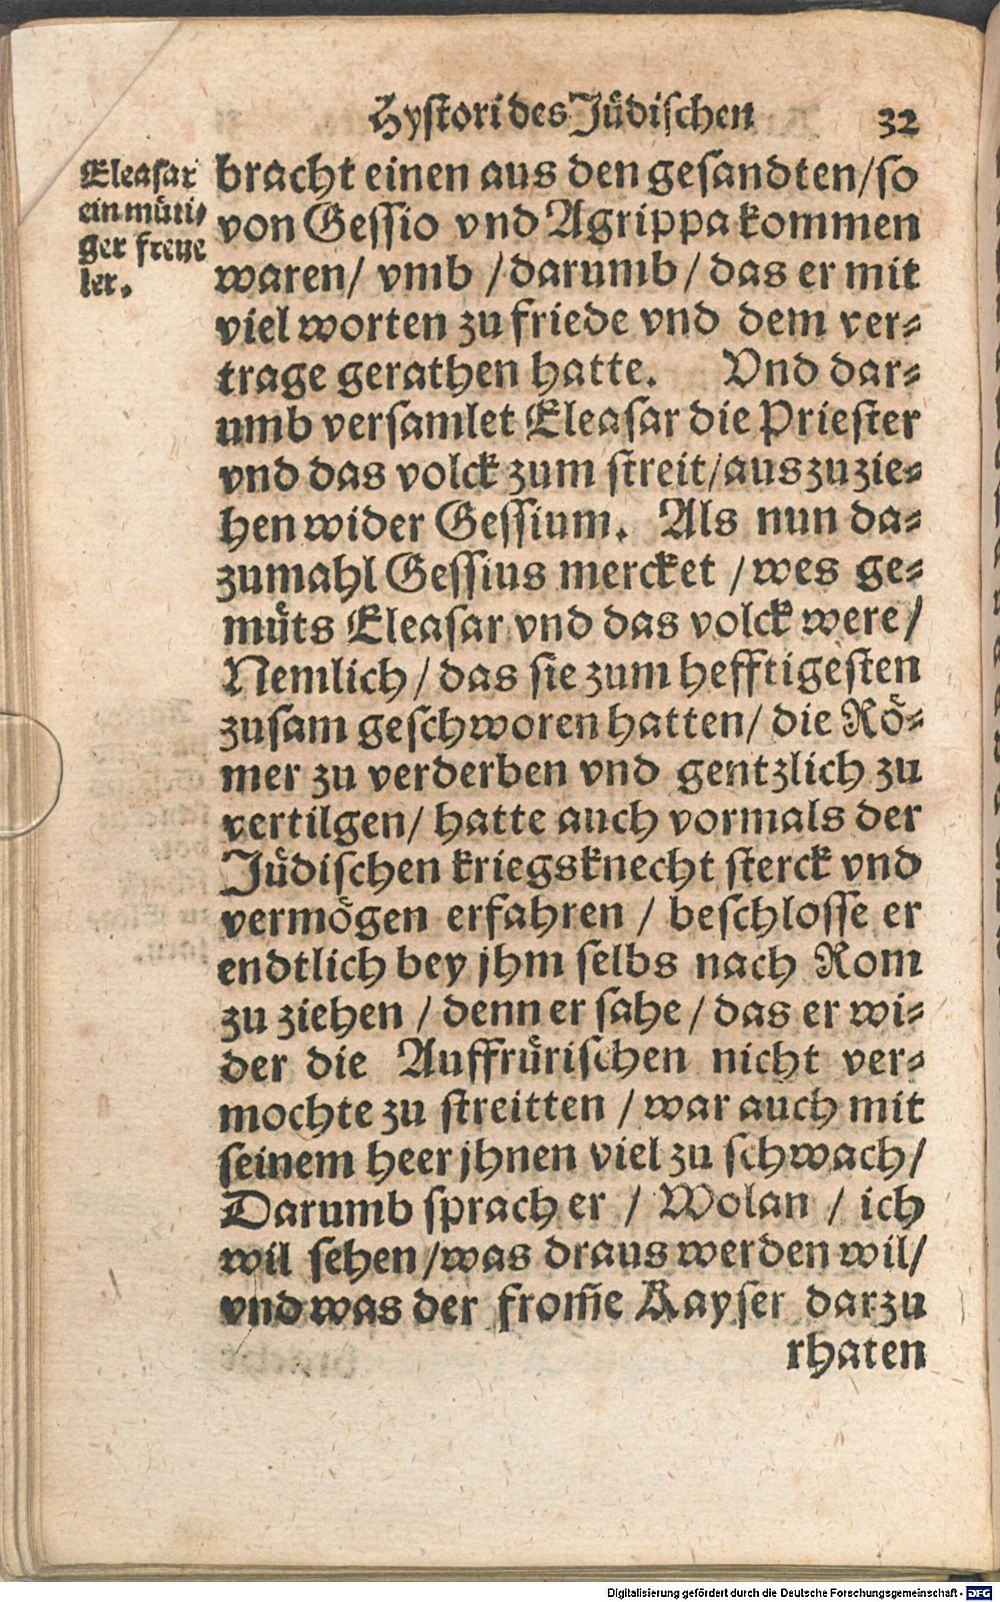 Hystori des Jüdischen 32
Eleasar
ein müti⸗
ger freue
ler.
bracht einen aus den gesandten/so
von Gessio vnd Agrippa kommen
waren/ vmb /darumb/ das er mit
viel worten zu friede vnd dem ver⸗
trage gerathen hatte. Vnd dar⸗
umb versamlet Eleasar die Priester
vnd das volck zum streit/auszuzie⸗
hen wider Gessium. Als nun da⸗
zumahl Gessius mercket /wes ge⸗
müts Eleasar vnd das volck were/
Nemlich/ das sie zum hefftigesten
zusam geschworen hatten/ die Rö⸗
mer zu verderben vnd gentzlich zu
vertilgen/ hatte auch vormals der
Jüdischen kriegsknecht sterck vnd
vermögen erfahren / beschlosse er
endtlich bey jhm selbs nach Rom
zu ziehen / denn er sahe / das er wi⸗
der die Auffrürischen nicht ver⸗
mochte zu streitten /war auch mit
seinem heer jhnen viel zu schwach/
Darumb sprach er / Wolan / ich
wil sehen/was draus werden wil/
vnd was der from̃e Kayser darzu
rhaten
Digitalisierung gefördert durch die Deutsche Forschungsgemeinschaft - DFG